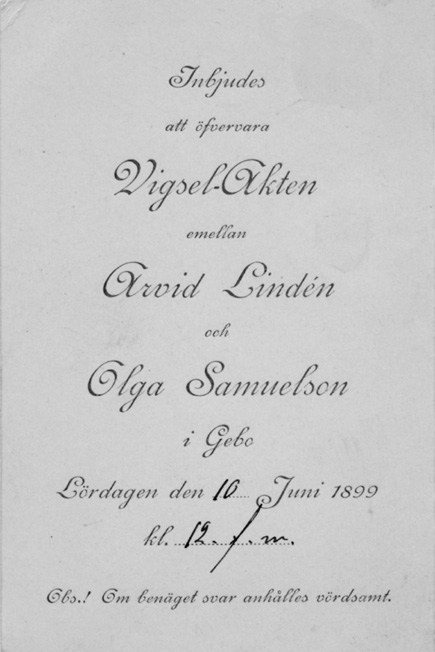 Inbjudes
att öfvervara
Vigsel-Akten
emellan
Arvid Lindén
och
Olga Samuelson
i Gebo
Lördagen den 10 Juni 1899
kl. 12. f. m.
Obs.! Om benäget svar anhålles vördsamt.